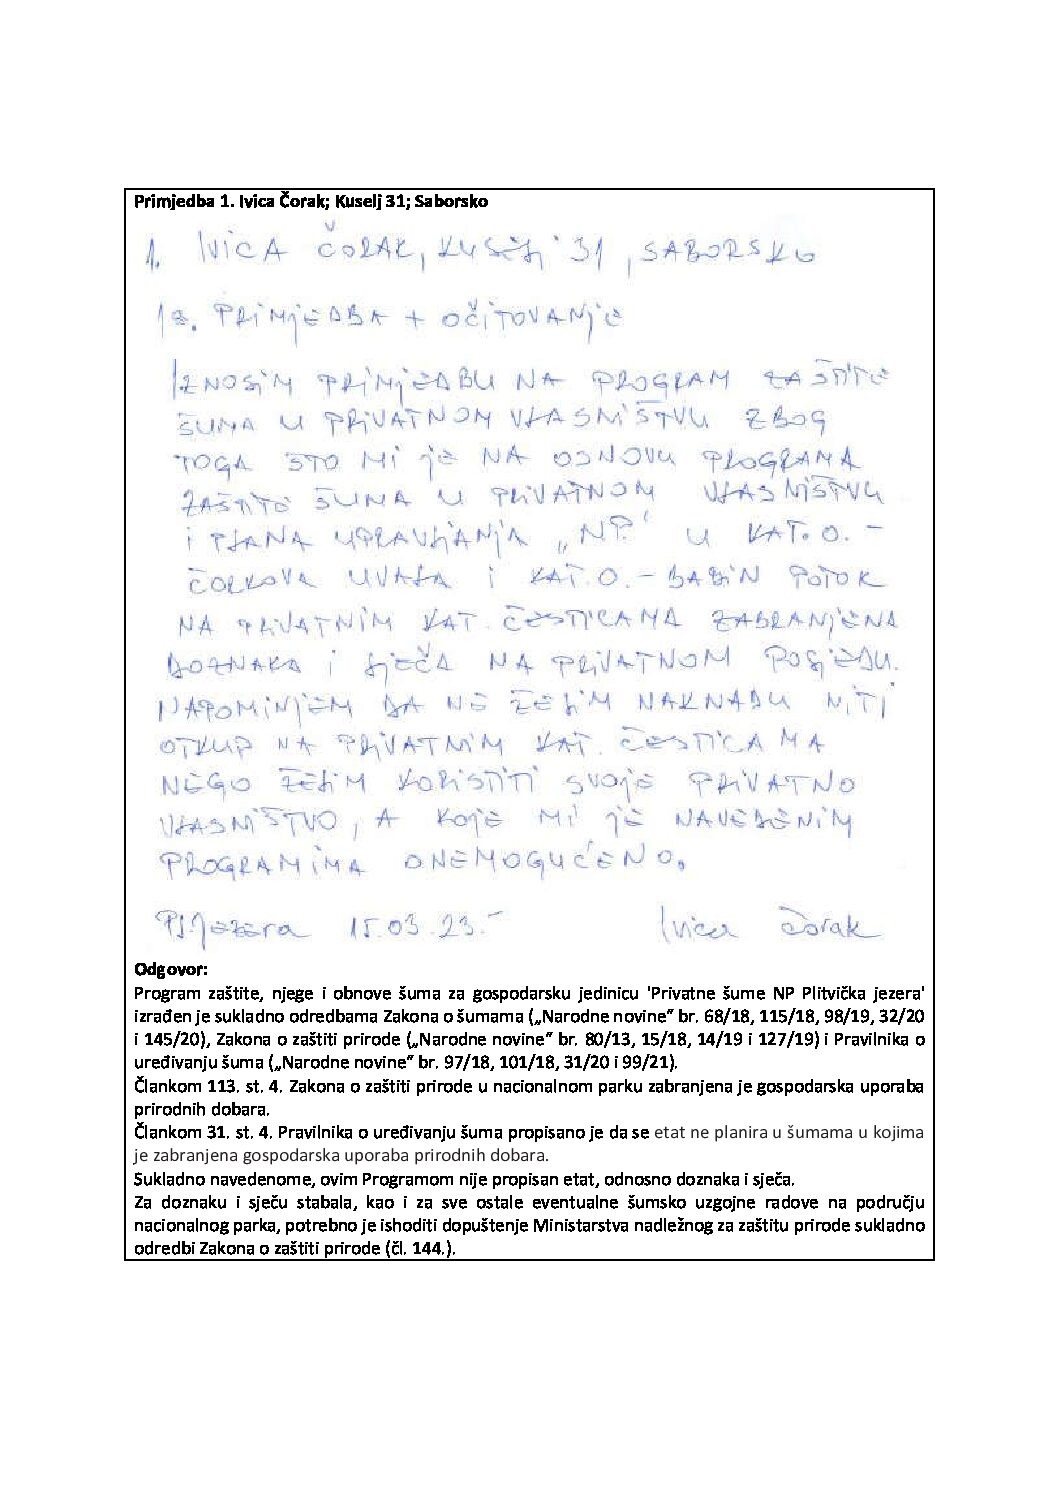 Primjedba 1. Ivica Čorak; Kuselj 31; Saborsko
1. IVICA ČORAK, KUSELJ 31, SABORSKO
1a. PRIMJEDBA + OČITOVANJE
IZNOSIM PRIMJEDBU NA PROGRAM ZAŠTITE
ŠUMA U PRIVATNOM VLASNIŠTVU ZBOG
TOGA ŠTO MI JE NA OSNOVU PROGRAMA
ZAŠTITE ŠUMA U PRIVATNOM VLASNIŠTVU
I PLANA UPRAVLJANJA „NP." U KAT.O. -
ČORKOVA UVALA I KAT.O. - BABIN POTOK
NA PRIVATNIM KAT. ČESTICAMA ZABRANJENA
DOZNAKA I SJEČA NA PRIVATNOM POSJEDU.
NAPOMINJEM DA NE ŽELIM NAKNADU NITI
OTKUP NA PRIVATNIM KAT. ČESTICAMA
NEGO ŽELIM KORISTITI SVOJE PRIVATNO
VLASNIŠTVO, A KOJE MI JE NAVEDENIM
PROGRAMIMA ONEMOGUĆENO.
Pl.Jezera 15.03.23.- Ivica Čorak
Odgovor:
Program zaštite, njege i obnove šuma za gospodarsku jedinicu 'Privatne šume NP Plitvička jezera'
izrađen je sukladno odredbama Zakona o šumama („Narodne novine" br. 68/18, 115/18, 98/19, 32/20
i 145/20), Zakona o zaštiti prirode („Narodne novine" br. 80/13, 15/18, 14/19 i 127/19) i Pravilnika o
uređivanju šuma („Narodne novine" br. 97/18, 101/18, 31/20 i 99/21).
Člankom 113. st. 4. Zakona o zaštiti prirode u nacionalnom parku zabranjena je gospodarska uporaba
prirodnih dobara.
Člankom 31. st. 4. Pravilnika o uređivanju šuma propisano je da se etat ne planira u šumama u kojima
je zabranjena gospodarska uporaba prirodnih dobara.
Sukladno navedenome, ovim Programom nije propisan etat, odnosno doznaka i sječa.
Za doznaku i sječu stabala, kao i za sve ostale eventualne šumsko uzgojne radove na području
nacionalnog parka, potrebno je ishoditi dopuštenje Ministarstva nadležnog za zaštitu prirode sukladno
odredbi Zakona o zaštiti prirode (čl. 144.).